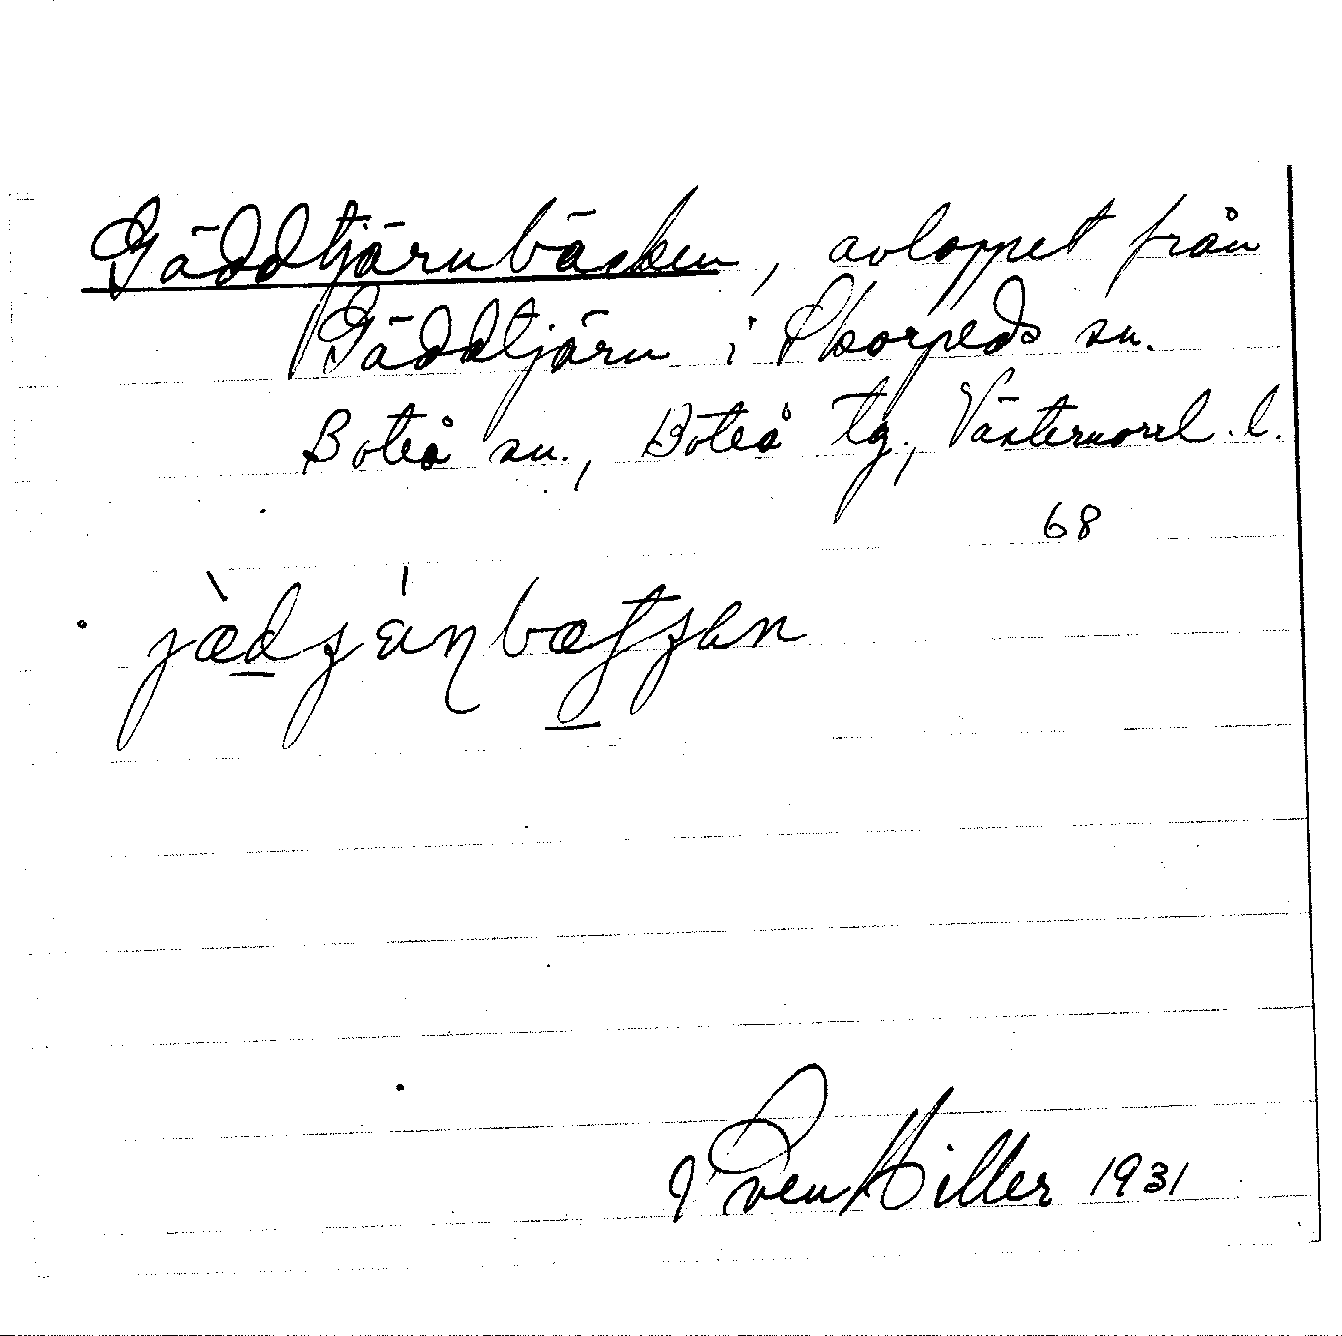 Gäddtjärnbäcken, avloppet från
Gäddtjärn i Skorpeds sn.
Boteå sn., Boteå tg., Västernorrl. l.
68
Sven Hiller 1931